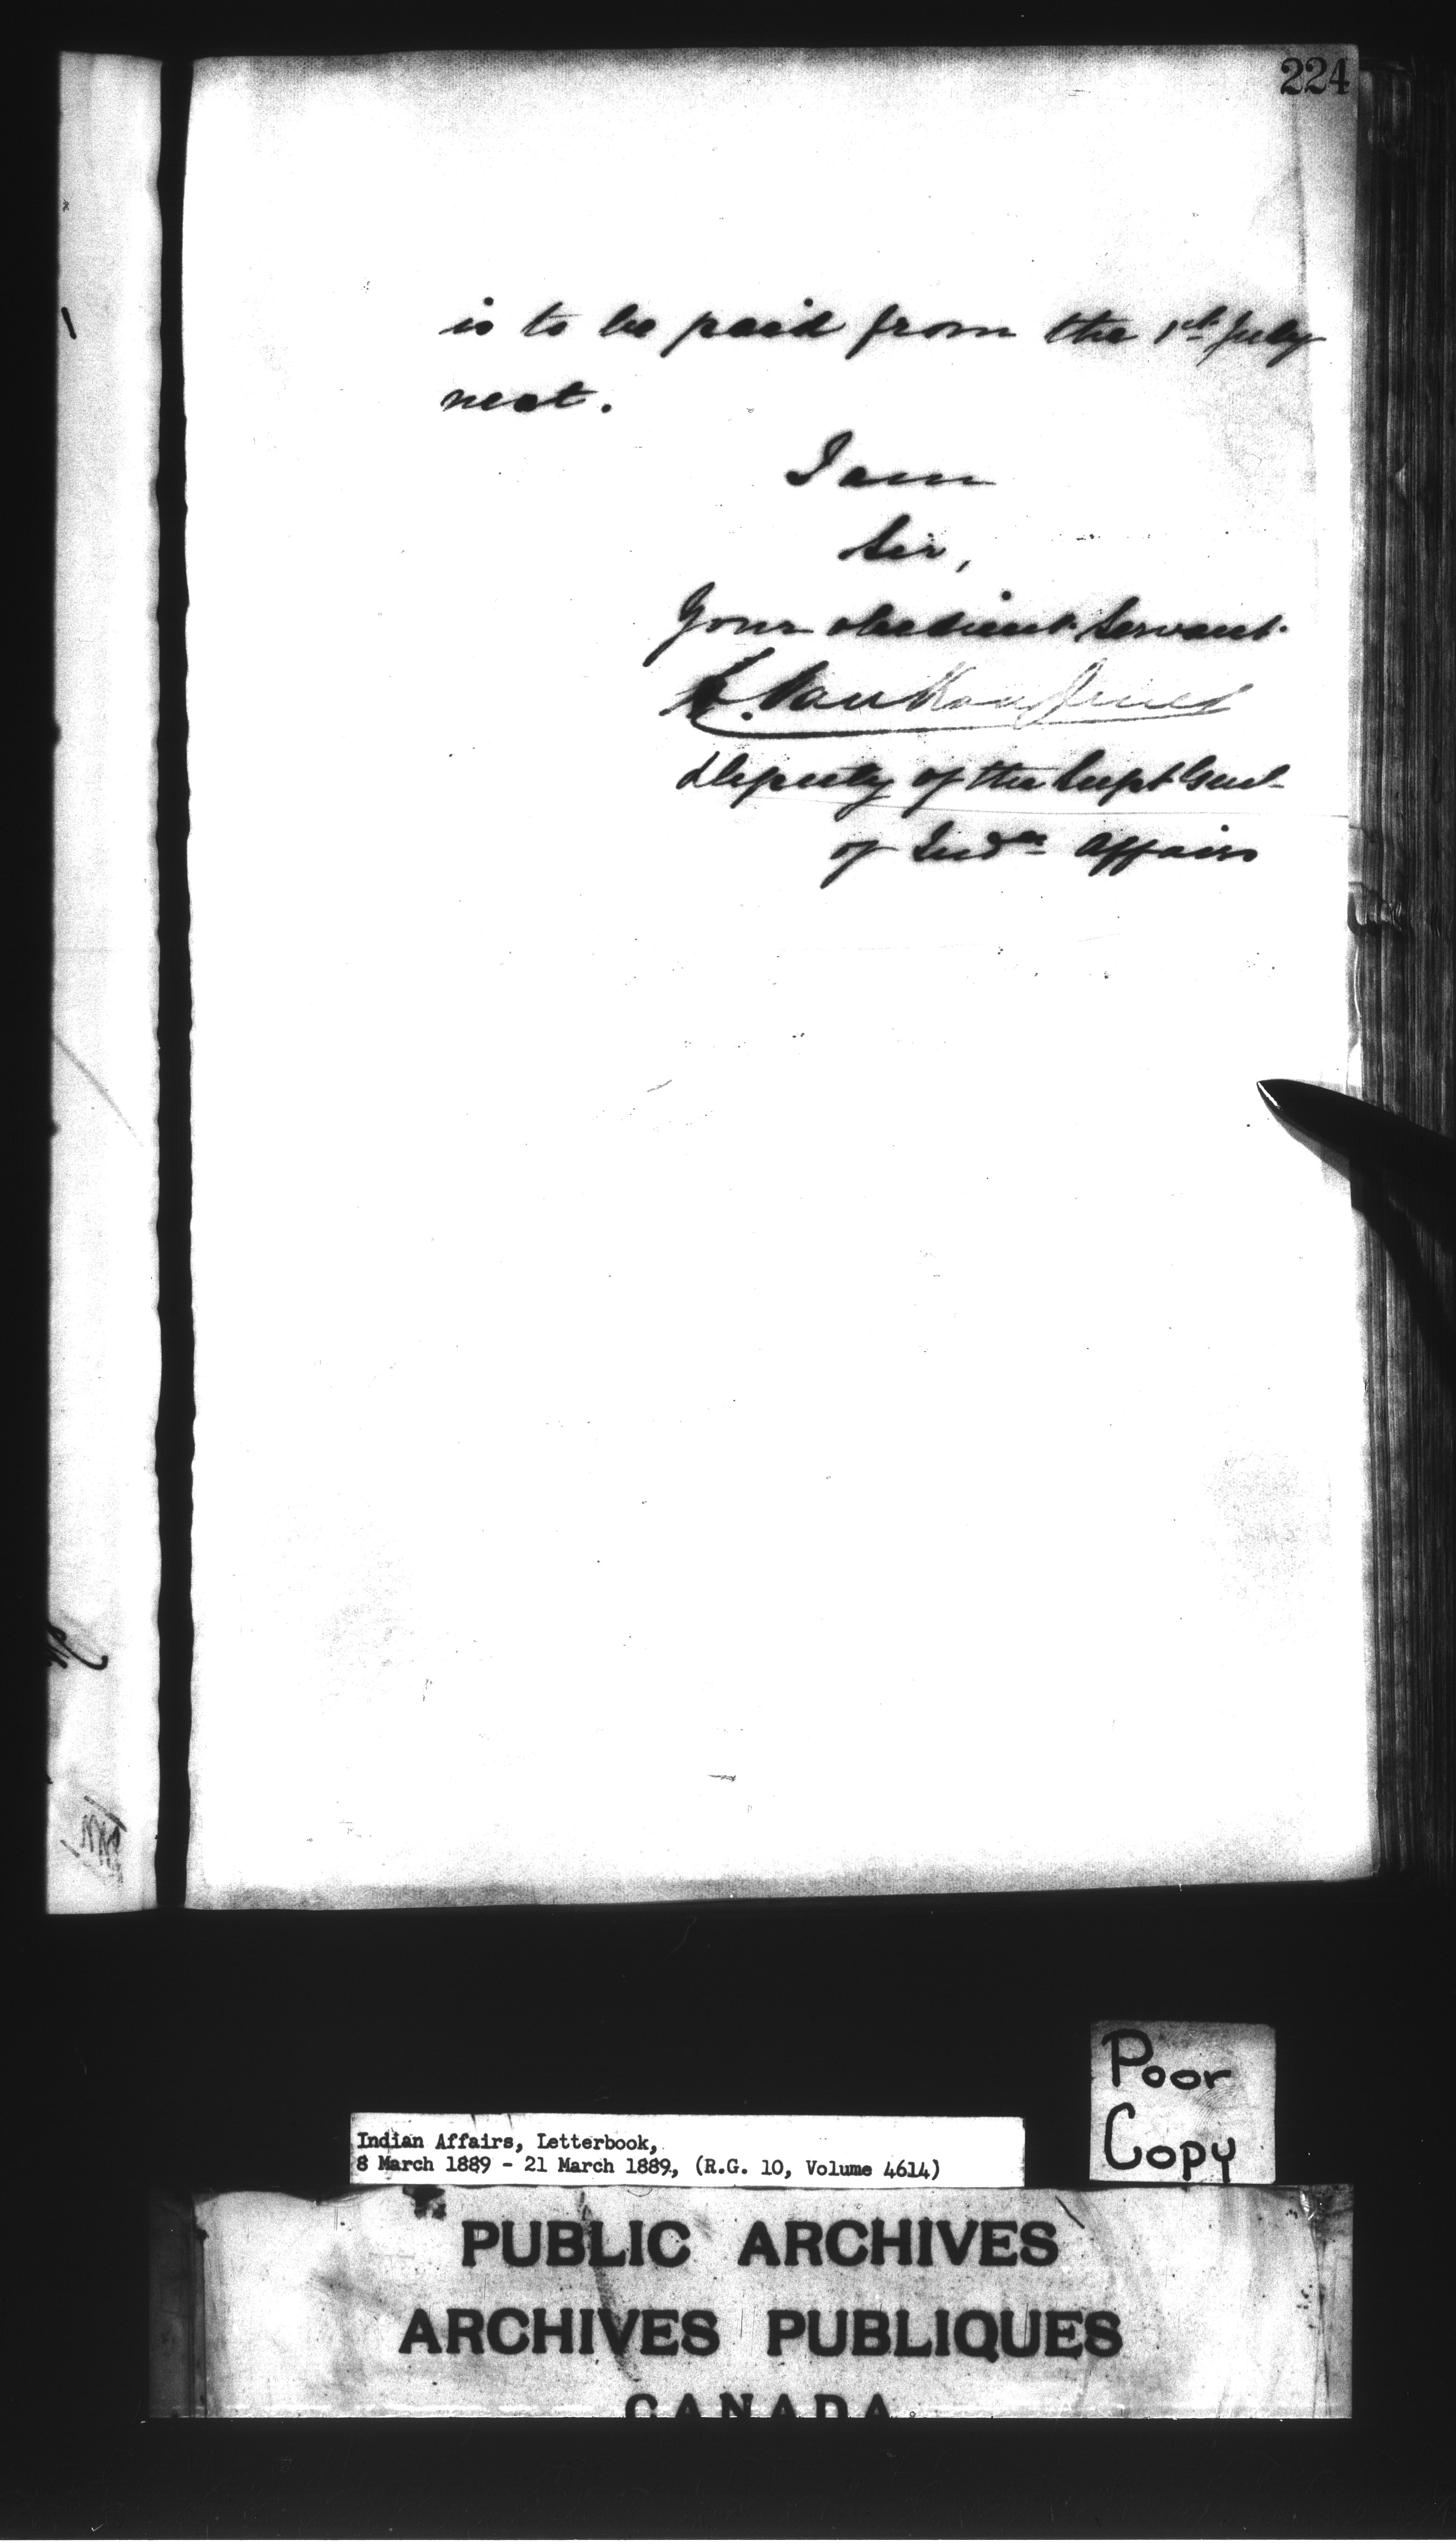 224
is to be paid from the 1st July
next.
I am
Sir,
Your obedient Servant.
L. VanKoughnet
Deputy of the Supt Genl
of Indn Affairs
Poor
Copy
Indian Affairs, Letterbook,
8 March 1889 - 21 March 1889, (R.G. 10, Volume 4614)
PUBLIC ARCHIVES
ARCHIVES PUBLIQUES
CANADA